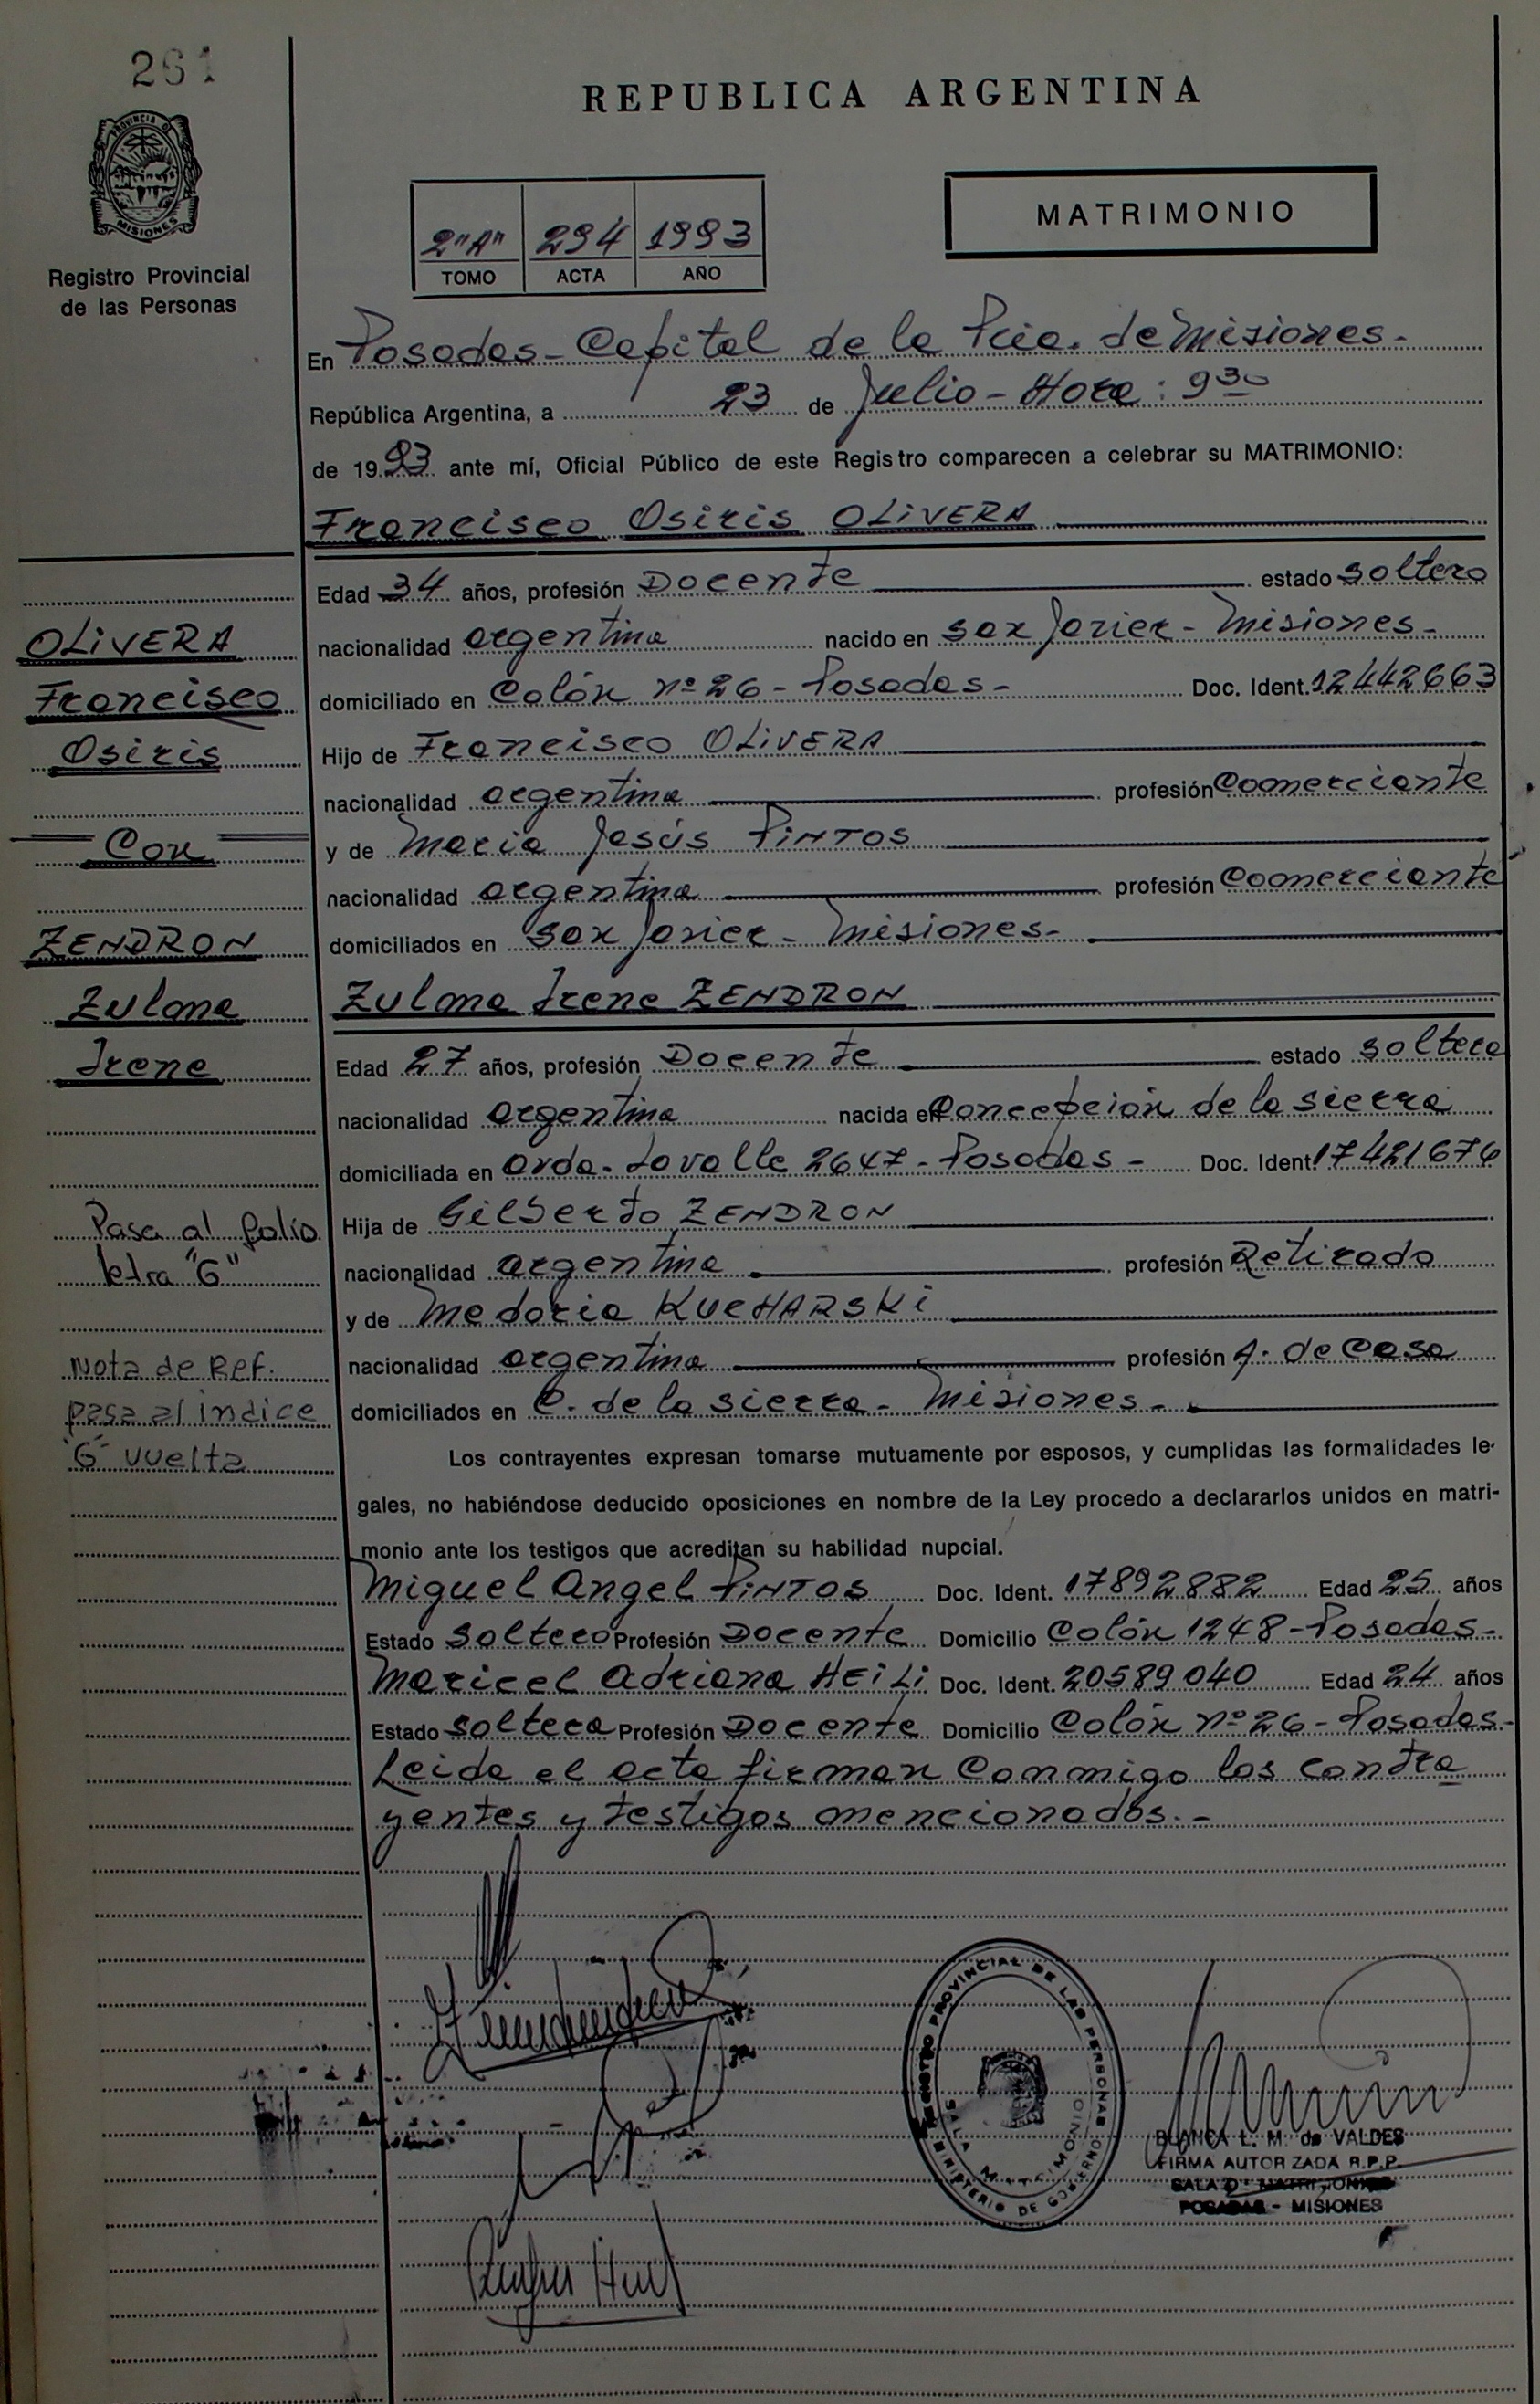 261
REPUBLICA ARGENTINA
PROVINCIA DE
MISIONES
Registro Provincial
de las Personas
2"A" 294 1993
TOMO ACTA AÑO
MATRIMONIO
En Posadas - Capital de la Pcia. de Misiones -
República Argentina, a 23 de Julio - Hora: 9 30
de 19 93 ante mí, Oficial Público de este Registro comparecen a celebrar su MATRIMONIO:
Francisco Osiris OLIVERA
Edad 34 años, profesión Docente estado soltero
nacionalidad argentina nacido en San Javier - Misiones -
domiciliado en Colón nº 26 - Posadas - Doc. Ident. 12442663
Hijo de Francisco OLIVERA
nacionalidad argentina profesión Comerciante
y de María Jesús PINTOS
nacionalidad argentina profesión Comerciante
domiciliados en San Javier - Misiones -
Zulma Irene ZENDRON
Edad 27 años, profesión Docente estado soltera
nacionalidad argentina nacida en Concepción de la Sierra
domiciliada en Avda. Lavalle 2647 - Posadas - Doc. Ident. 17421676
Hija de Gilberto ZENDRON
nacionalidad argentina profesión Retirado
y de Medoria KUCHARSKI
nacionalidad argentina profesión A. de Casa
domiciliados en C. de la Sierra - Misiones -
Los contrayentes expresan tomarse mutuamente por esposos, y cumplidas las formalidades le-
gales, no habiéndose deducido oposiciones en nombre de la Ley procedo a declararlos unidos en matri-
monio ante los testigos que acreditan su habilidad nupcial.
Miguel Angel PINTOS Doc. Ident. 17892882 Edad 25 años
Estado soltero Profesión Docente Domicilio Colón 1248 - Posadas -
Maricel Adriana HEILI Doc. Ident. 20589040 Edad 24 años
Estado soltera Profesión Docente Domicilio Colón nº 26 - Posadas -
Leida el acta firman conmigo los contra
yentes y testigos mencionados. -
OLIVERA
Francisco
Osiris
Con
ZENDRON
Zulma
Irene
Pasa al folio
letra "G"
Nota de Ref.
pasa al indice
"G" vuelta
REGISTRO PROVINCIAL DE LAS PERSONAS
SALA MATRIMONIO
MINISTERIO DE GOBIERNO
BLANCA L. M. de VALDES
FIRMA AUTORIZADA R.P.P.
SALA D - MATRIMONIOS
POSADAS - MISIONES